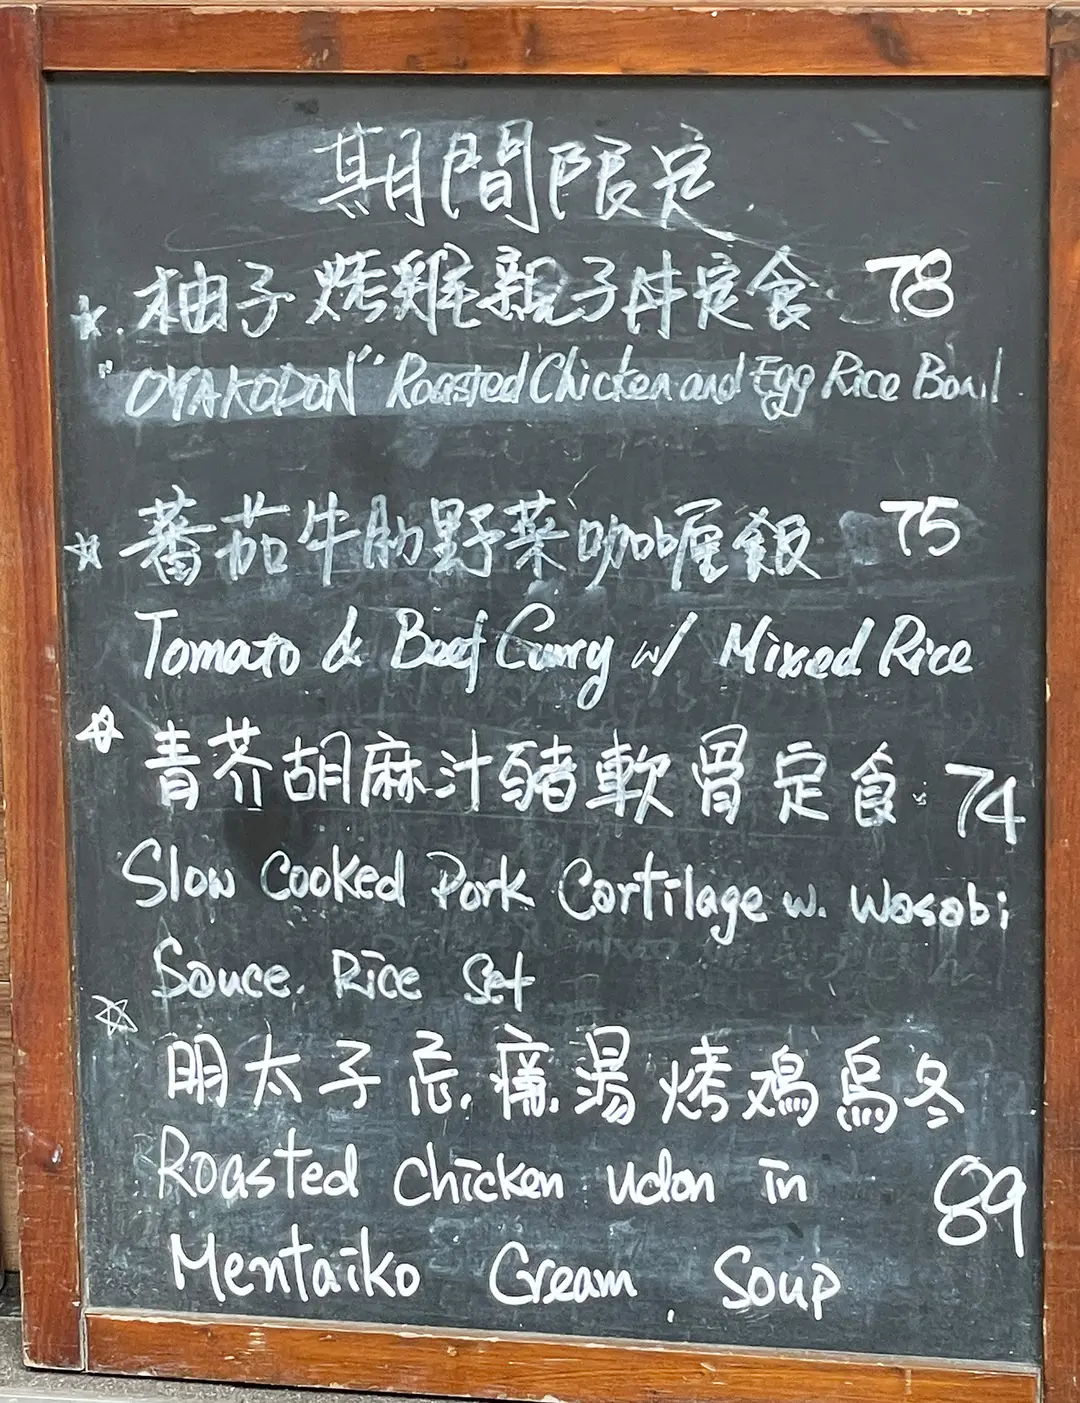 期間限定
☆ 柚子烤雞親子丼定食 78
"OYAKODON" Roasted Chicken and Egg Rice Bowl
☆ 蕃茄牛肋野菜咖喱飯 75
Tomato & Beef Curry w/ Mixed Rice
☆ 青芥胡麻汁豬軟骨定食 74
Slow Cooked Pork Cartilage w. Wasabi
Sauce. Rice Set
☆ 明太子忌廉湯烤鷄烏冬
Roasted Chicken Udon in 89
Mentaiko Cream Soup